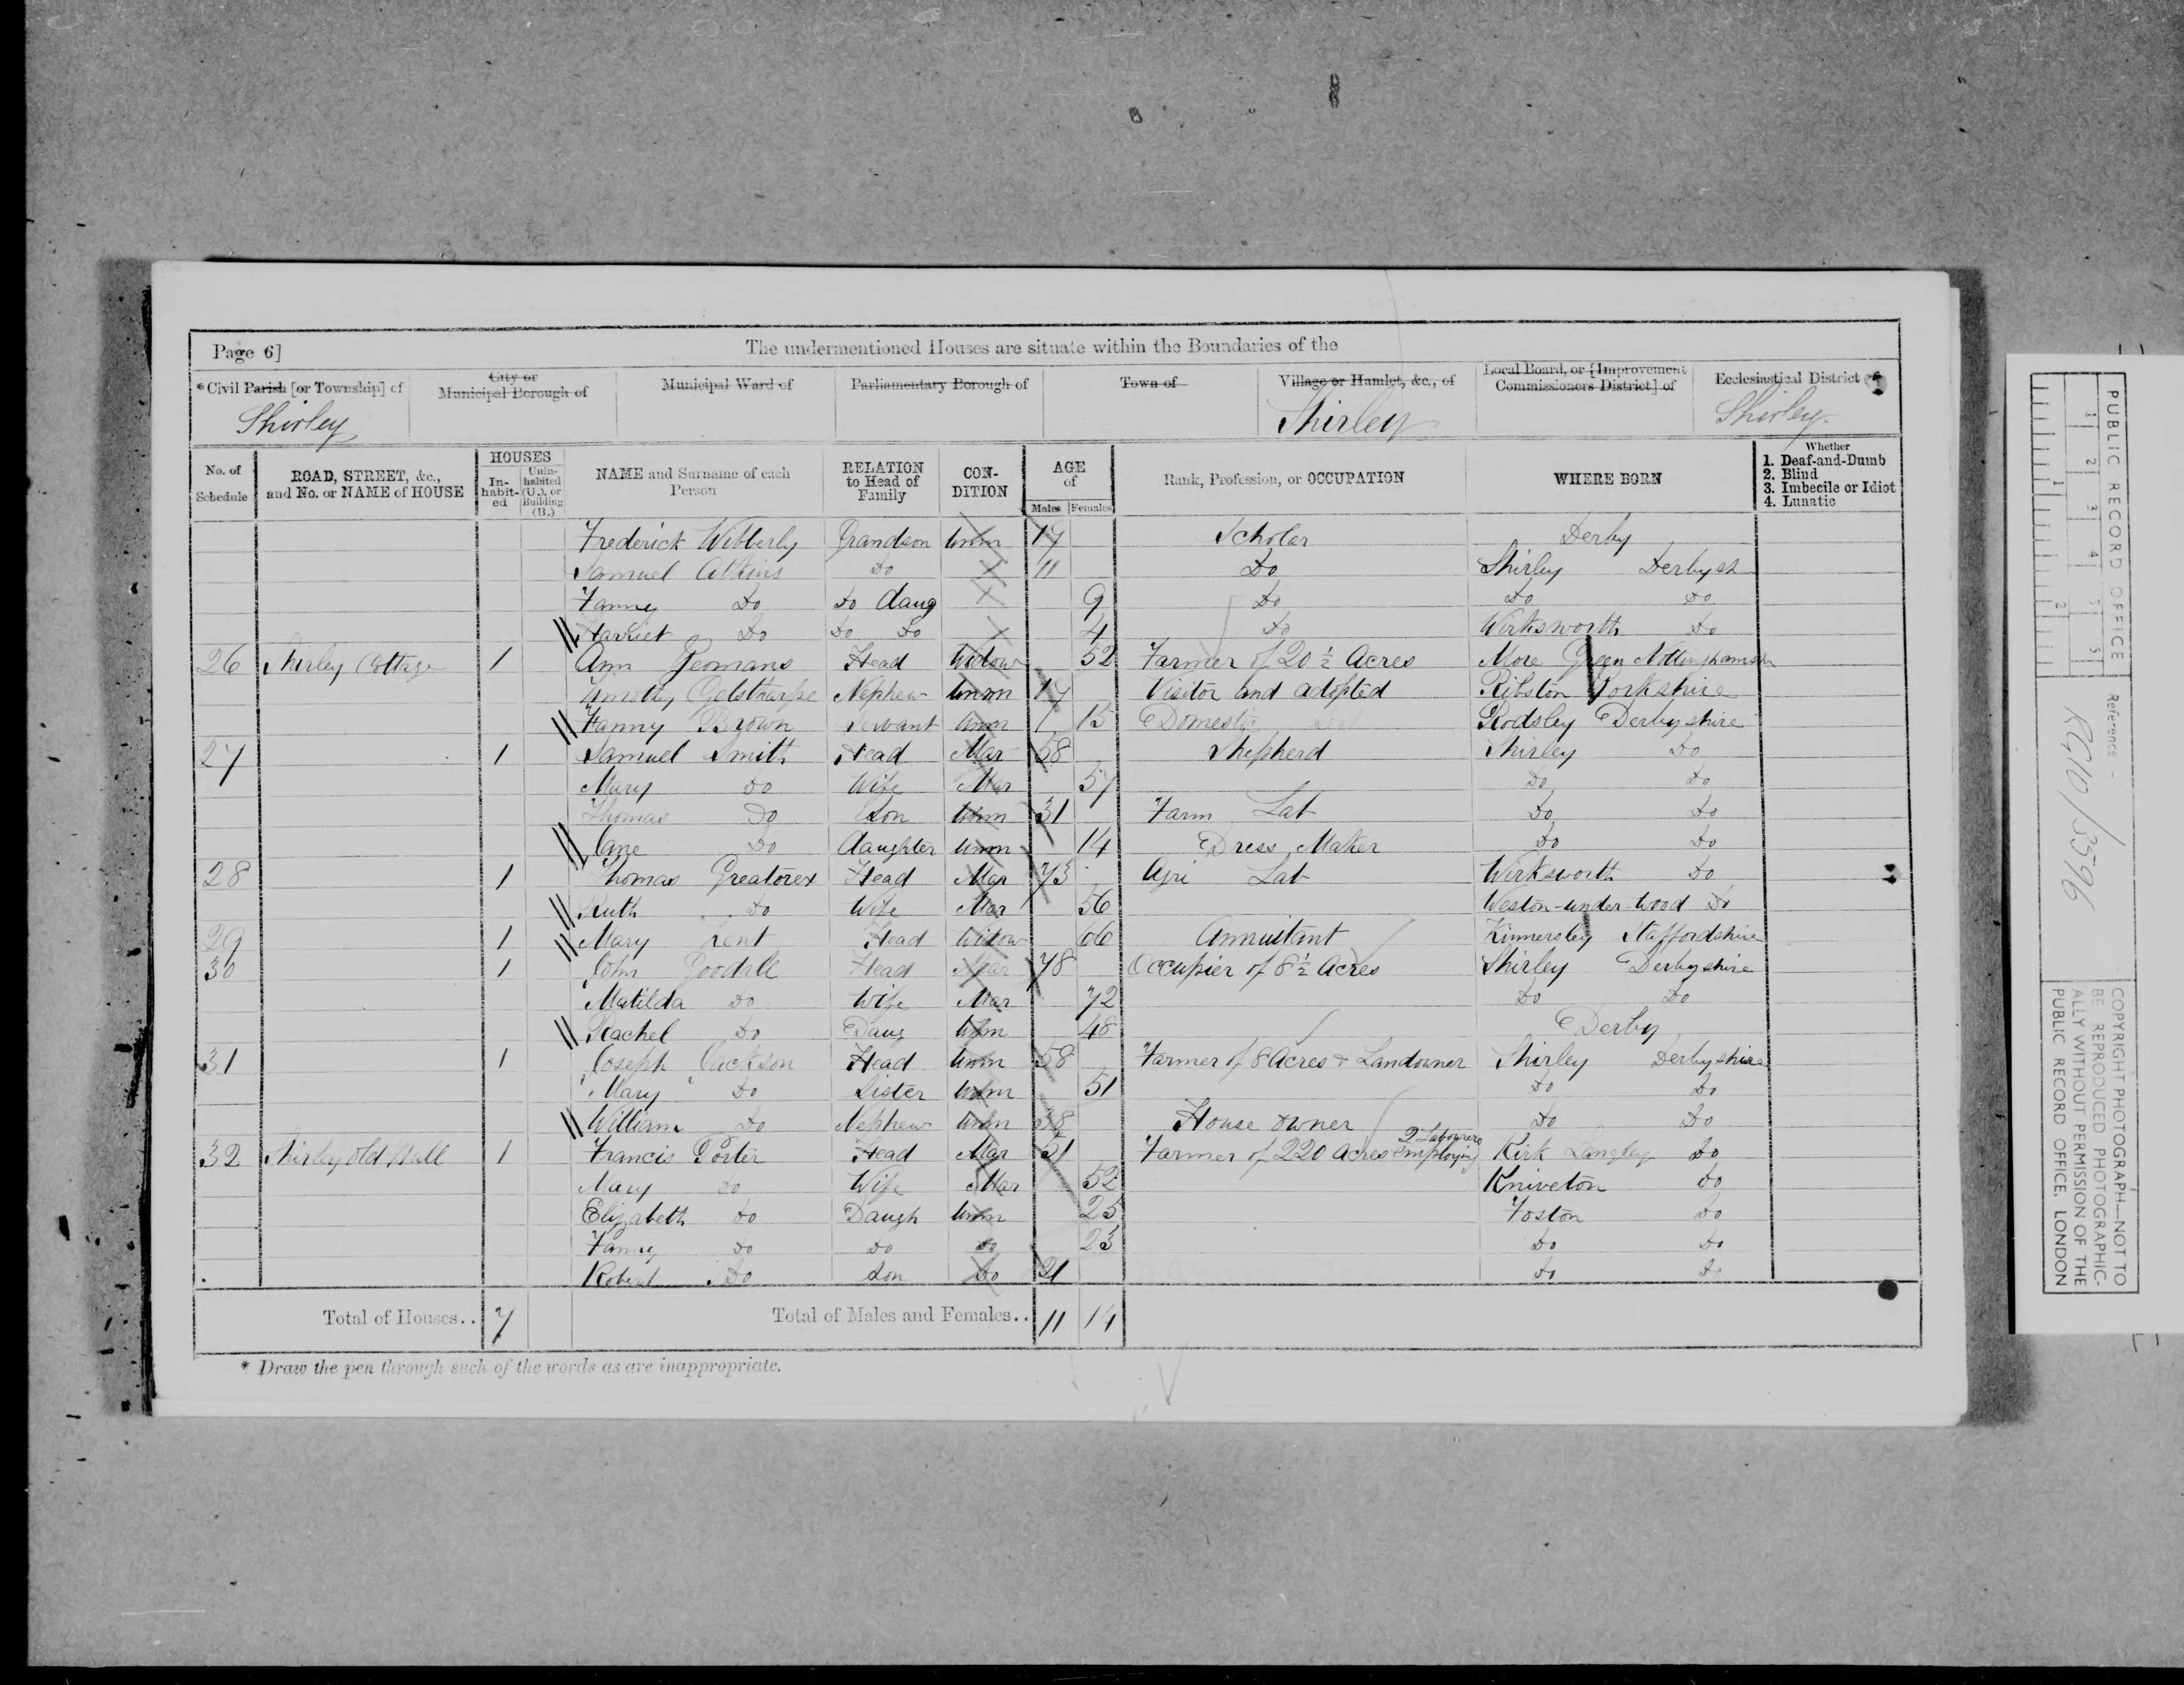 Page 6]
The undermentioned Houses are situate within the Boundaries of the
*Civil Parish [or Township] of
City or Municipal Borough of
Municipal Ward of
Parliamentary Borough of
Town of
Village or Hamlet, &c., of
Local Board, or [Improvement Commissioners District] of
Ecclesiastical District of
Shirley
Shirley
Shirley
No. of Schedule
ROAD, STREET, &c., and No. or NAME of HOUSE
HOUSES
In-habit-ed
Unin-habited (U.), or Building (B.)
NAME and Surname of each Person
RELATION to Head of Family
CON-DITION
AGE of
Males Females
Rank, Profession, or OCCUPATION
WHERE BORN
Whether
1. Deaf-and-Dumb
2. Blind
3. Imbecile or Idiot
4. Lunatic
Frederick Wibberly Grandson Unm 17 Scholar Derby
Samuel Atkins Do 11 Do Shirley Derbysh
Fanny Do Do daug 9 Do Do Do
Harriet Do Do Do 4 Do Wirksworth Do
26 Shirley Cottage 1 Ann Yeomans Head Widow 52 Farmer of 20 ½ Acres More Green Nottinghamsh
Timothy Gelsthorpe Nephew Unm 17 Visitor and adopted Ribston Yorkshire
Fanny Brown Servant Unm Domestic Rodsley Derbyshire
27 1 Samuel Smith Head Mar 58 Shepherd Shirley Do
Mary Do Wife Mar 57 Do Do
Thomas Do Son Unm 31 Farm Lab Do Do
Jane Do daughter Unm 14 Dress Maker Do Do
28 1 Thomas Greatorex Head Mar 73 Agri Lab Wirksworth Do
Ruth Do Wife Mar 56 Weston-under-wood Do
29 1 Mary Kent Head Widow 66 Annuitant Kinnersley Staffordshire
30 1 John Goodall Head Mar 78 Occupier of 8 ½ Acres Shirley Derbyshire
Matilda Do Wife Mar 72 Do Do
Rachel Do Daug Unm 48 Derby
31 1 Joseph Jackson Head Unm 58 Farmer of 8 Acres & Landowner Shirley Derbyshire
Mary Do Sister Unm 51 Do Do
William Do Nephew Unm 38 House owner Do Do
32 Shirley Old Hall 1 Francis Porter Head Mar 51 Farmer of 220 Acres employing 2 Labourers Kirk Langley Do
Mary Do Wife Mar 52 Kniveton Do
Elizabeth Do Daugh Unm 25 Foston Do
Fanny Do Do Do 23 Do Do
Robert Do Son Do 21 Do Do
Total of Houses.. 7
Total of Males and Females.. 11 14
* Draw the pen through such of the words as are inappropriate.
PUBLIC RECORD OFFICE
1 2 3 4 5
1 2
Reference -
RG10/3596
COPYRIGHT PHOTOGRAPH—NOT TO BE REPRODUCED PHOTOGRAPHIC-ALLY WITHOUT PERMISSION OF THE PUBLIC RECORD OFFICE, LONDON